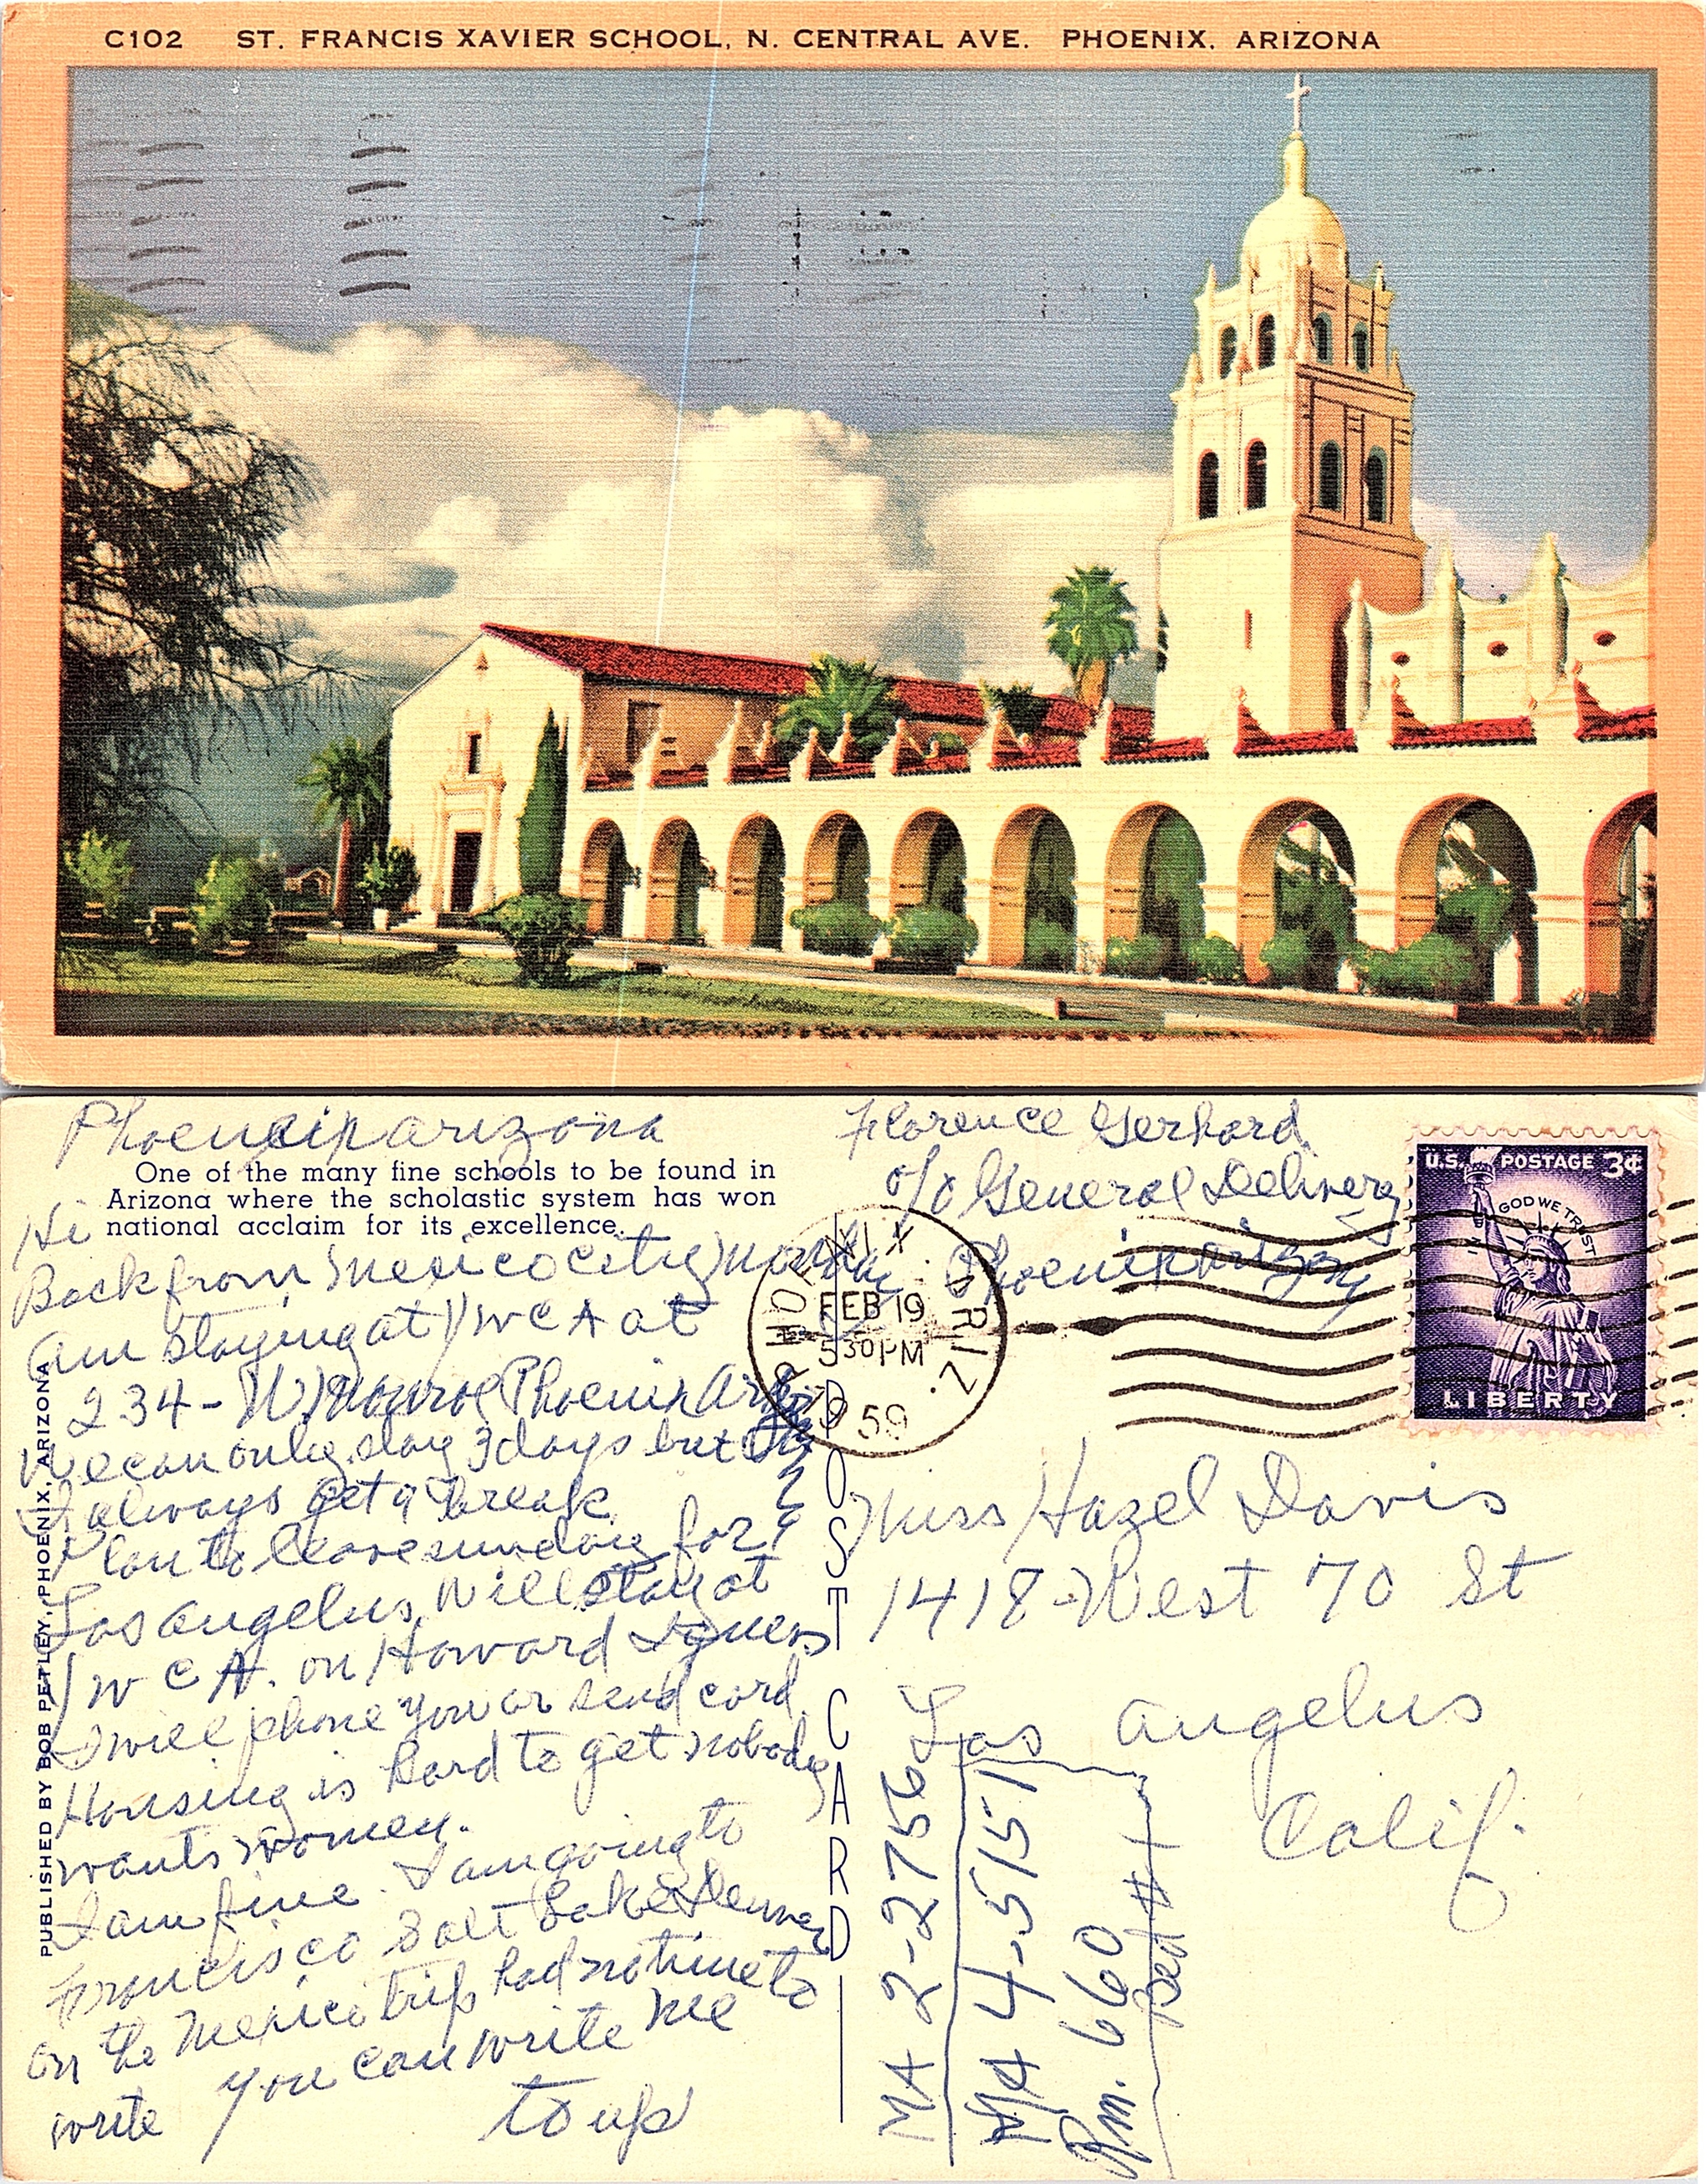 C102 ST. FRANCIS XAVIER SCHOOL, N. CENTRAL AVE. PHOENIX, ARIZONA
Phoenix arizona
One of the many fine schools to be found in
Arizona where the scholastic system has won
national acclaim for its excellence.
Hi
Back from Mexico City Monday
am staying at YWCA at
234 - W Monroe Phoenix
We can only stay 3 days but
I always get a break
Plan to leave sunday for
Los angelus. Will stay at
YWCA. on Howard
I will phone you or send card
Housing is hard to get nobody
wants women.
I am fine. I am going to
Francisco Salt Lake Denver
on the Mexico trip had no time to
write you can write me
to up
PUBLISHED BY BOB PETLEY, PHOENIX, ARIZONA
POST CARD
Florence Gerhard
c/o General Delivery
Phoenix arizona
PHOENIX ARIZ.
FEB 19
5 30 PM
1959
U.S. POSTAGE 3¢
IN GOD WE TRUST
LIBERTY
Miss Hazel Davis
1418 - West 70 St
Los angelus
Calif.
MA 2-2756
MA 4-5151
Rm. 660
Bed #1